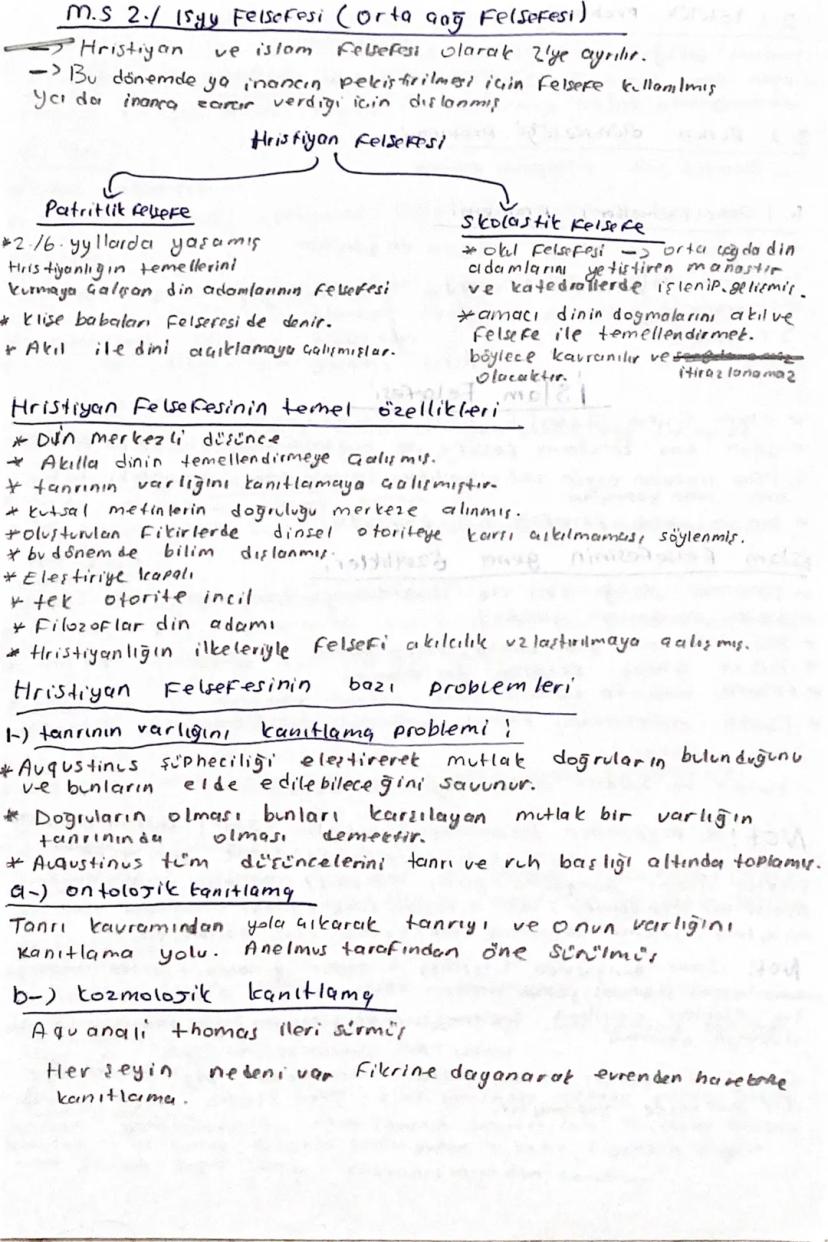 M.S 2./ 15yy Felsefesi (orta çağ Felsefesi)
-> Hristiyan ve islam felsefesi olarak 2'ye ayrılır.
-> Bu dönemde ya inancın pekiştirilmesi için Felsefe kullanılmış
ya da inanca zarar verdiği için dışlanmış
Hristiyan Felsefesi
Patritlik felsefe
*2./6.yyllarda yaşamış
Hristiyanlığın temellerini
kurmaya çalışan din adamlarının felsefesi
* klise babaları Felsefesi de denir.
* Akıl ile dini açıklamaya çalışmışlar.
Skolastik Felsefe
* okul Felsefesi -> orta çağda din
adamlarını yetiştiren manastır
ve katedrallerde işlenip. gelişmiş.
*amacı dinin dogmalarını akıl ve
Felsefe ile temellendirmek.
böylece kavranılır ve
itirazlanamaz
olacaktır.
İslam Felsefesi
Hristiyan Felsefesinin temel özellikleri
* Din merkezli düşünce
* Akılla dinin temellendirmeye çalışmış.
* tanrının varlığını kanıtlamaya çalışmıştır.
* kutsal metinlerin doğruluğu merkeze alınmış.
*oluşturulan Fikirlerde dinsel otoriteye karşı çıkılmaması söylenmiş.
* bu dönemde bilim dışlanmış.
* Eleştiriye kapalı
* tek otorite incil
* Filozoflar din adamı
* Hristiyanlığın ilkeleriyle felsefi akılcılık uzlaştırılmaya çalışmış.
Hristiyan Felsefesinin bazı problemleri
1-) tanrının varlığını kanıtlama problemi:
*Augustinus şüpheciliği eleştirerek mutlak doğruların bulunduğunu
ve bunların elde edilebileceğini savunur.
* Doğruların olması bunları karşılayan mutlak bir varlığın
tanrınında olması demektir.
* Augustinus tüm düşüncelerini tanrı ve ruh başlığı altında toplamış.
a-) ontolojik kanıtlama
Tanrı kavramından yola çıkarak tanrıyı ve onun varlığını
kanıtlama yolu. Anelmus tarafından öne sürülmüş
b-) kozmolojik kanıtlama
Aquanali thomas ileri sürmüş
Her şeyin nedeni var Fikrine dayanarak evrenden hareketle
kanıtlama.